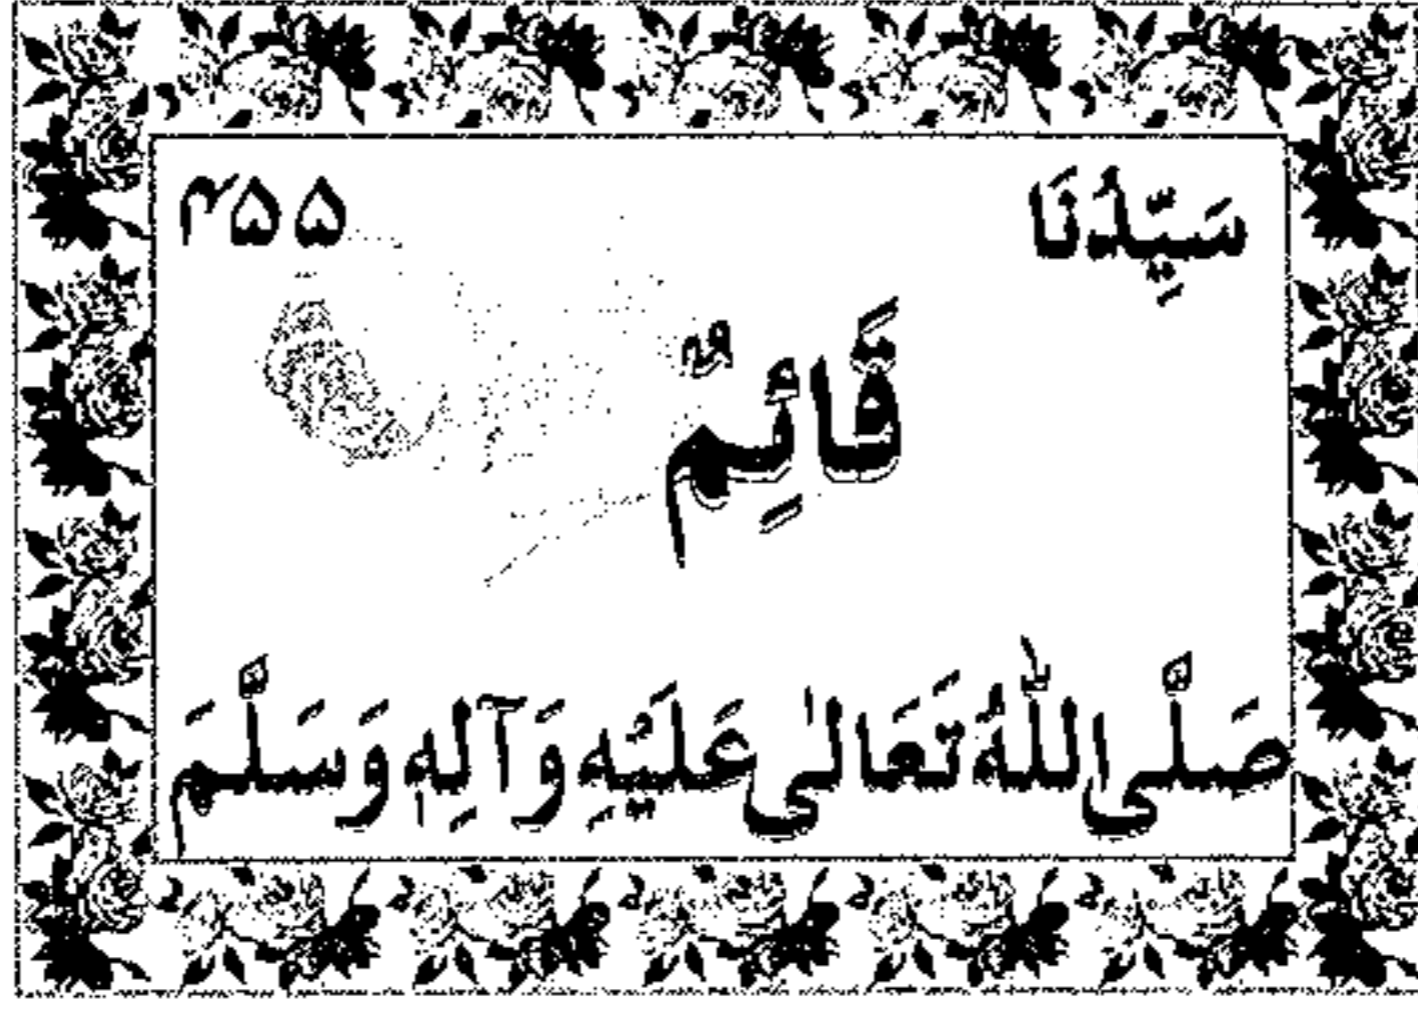 سَيِّدُنَا ۴۵۵
قَائِمٌ
صَلَّى اللّٰهُ تَعَالٰى عَلَيْهِ وَآلِهٖ وَسَلَّمَ